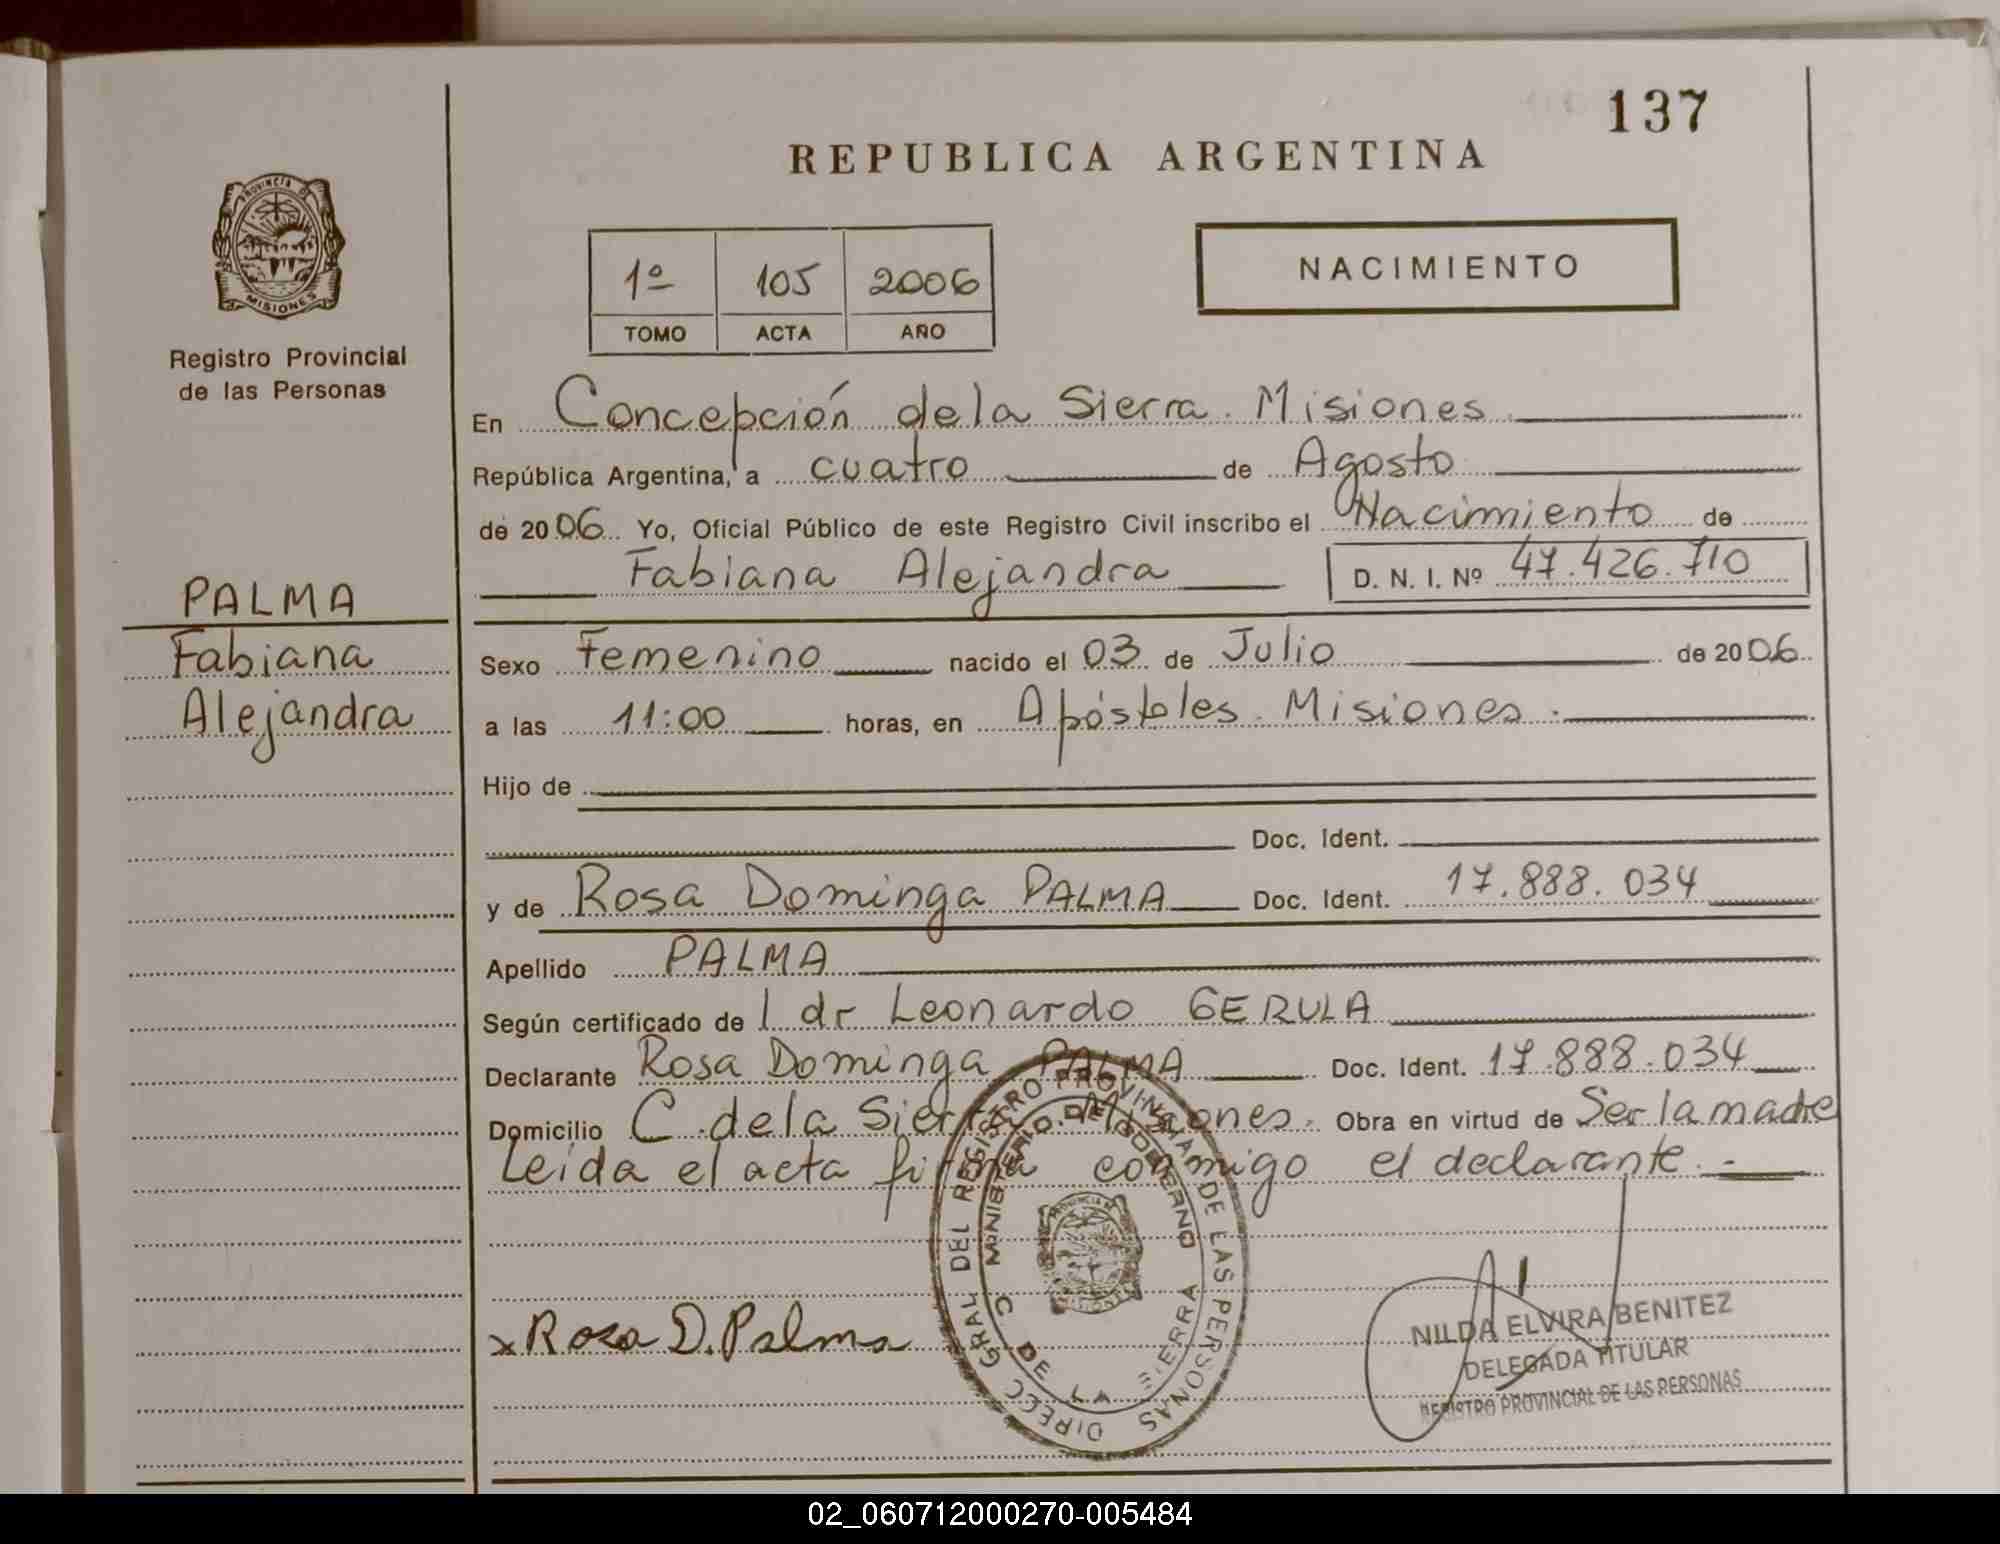 137
REPUBLICA ARGENTINA
PROVINCIA DE
MISIONES
Registro Provincial
de las Personas
1º 105 2006
TOMO ACTA AÑO
NACIMIENTO
En Concepción de la Sierra. Misiones
República Argentina, a cuatro de Agosto
de 2006 Yo, Oficial Público de este Registro Civil inscribo el Nacimiento de
Fabiana Alejandra D. N. I. Nº 47.426.710
PALMA
Fabiana
Alejandra
Sexo Femenino nacido el 03 de Julio de 2006
a las 11:00 horas, en Apóstoles. Misiones.
Hijo de
Doc. Ident.
y de Rosa Dominga PALMA Doc. Ident. 17.888.034
Apellido PALMA
Según certificado de l dr Leonardo GERULA
Declarante Rosa Dominga PALMA Doc. Ident. 17.888.034
Domicilio C. de la Sierra. Misiones. Obra en virtud de Ser la madre
Leida el acta firma conmigo el declarante.-
x Rosa D. Palma
DIREC GRAL DEL REGISTRO PROVINCIAL DE LAS PERSONAS
MINISTERIO DE GOBIERNO
C DE LA SIERRA
NILDA ELVIRA BENITEZ
DELEGADA TITULAR
REGISTRO PROVINCIAL DE LAS PERSONAS
02_060712000270-005484